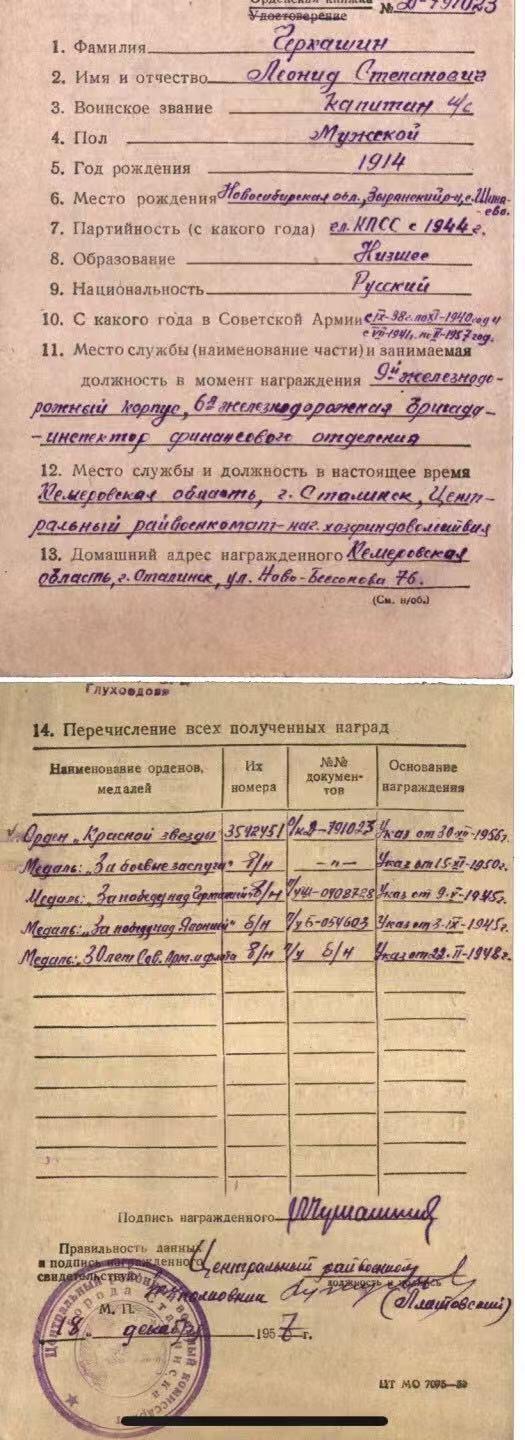 Орденская книжка
Удостоверение № Д-791023
1. Фамилия Черкашин
2. Имя и отчество Леонид Степанович
3. Воинское звание капитан и/с
4. Пол Мужской
5. Год рождения 1914
6. Место рождения Новосибирская обл., Зырянский р-н, с. Шина-
ево.
7. Партийность (с какого года) чл. КПСС с 1944 г.
8. Образование Низшее
9. Национальность Русский
10. С какого года в Советской Армии с IX-38г. по XI-1940 год и
с VII-1941г. по II-1957 год.
11. Место службы (наименование части) и занимаемая
должность в момент награждения 9й железнодо-
рожный корпус, 6я железнодорожная бригада-
-инспектор финансового отделения
12. Место службы и должность в настоящее время
Кемеровская область, г. Сталинск, Цент-
ральный райвоенкомат-нач. хозфиндовольствия
13. Домашний адрес награжденного Кемеровская
область, г. Сталинск, ул. Ново-Бессонова 76.
(См. н/об.)
Глуховдова
14. Перечисление всех полученных наград
Наименование орденов, медалей Их номера №№ документов Основание награждения
Орден „Красной звезды" 3542451 о/к Д-791023 Указ от 30-XII-1956г.
Медаль: „За боевые заслуги" б/н -"- Указ от 15-XI-1950г.
Медаль: „За победу над Германией" б/н Указ от 9-V-1945г.
Медаль: „За победу над Японией" б/н п/у Б-054603 Указ от 3-IX-1945г.
Медаль: „30 лет Сов. Арм. и флота б/н п/у б/н Указ от 22-II-1948г.
Подпись награжденного
Правильность данных
и подпись награжденного Центральный райвоенком
свидетельствую: должность и подпись
М. П. (Платовский)
18 „ декабря 1957 г.
ЦТ МО 7075—52